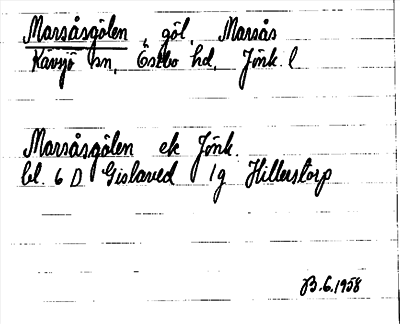 Marsåsgölen, göl, Marsås
Kävsjö sn, Östbo hd, Jönk. l
Marsåsgölen ek Jönk.
bl. 6 D Gislaved 1g Hillerstorp
B.G.1958